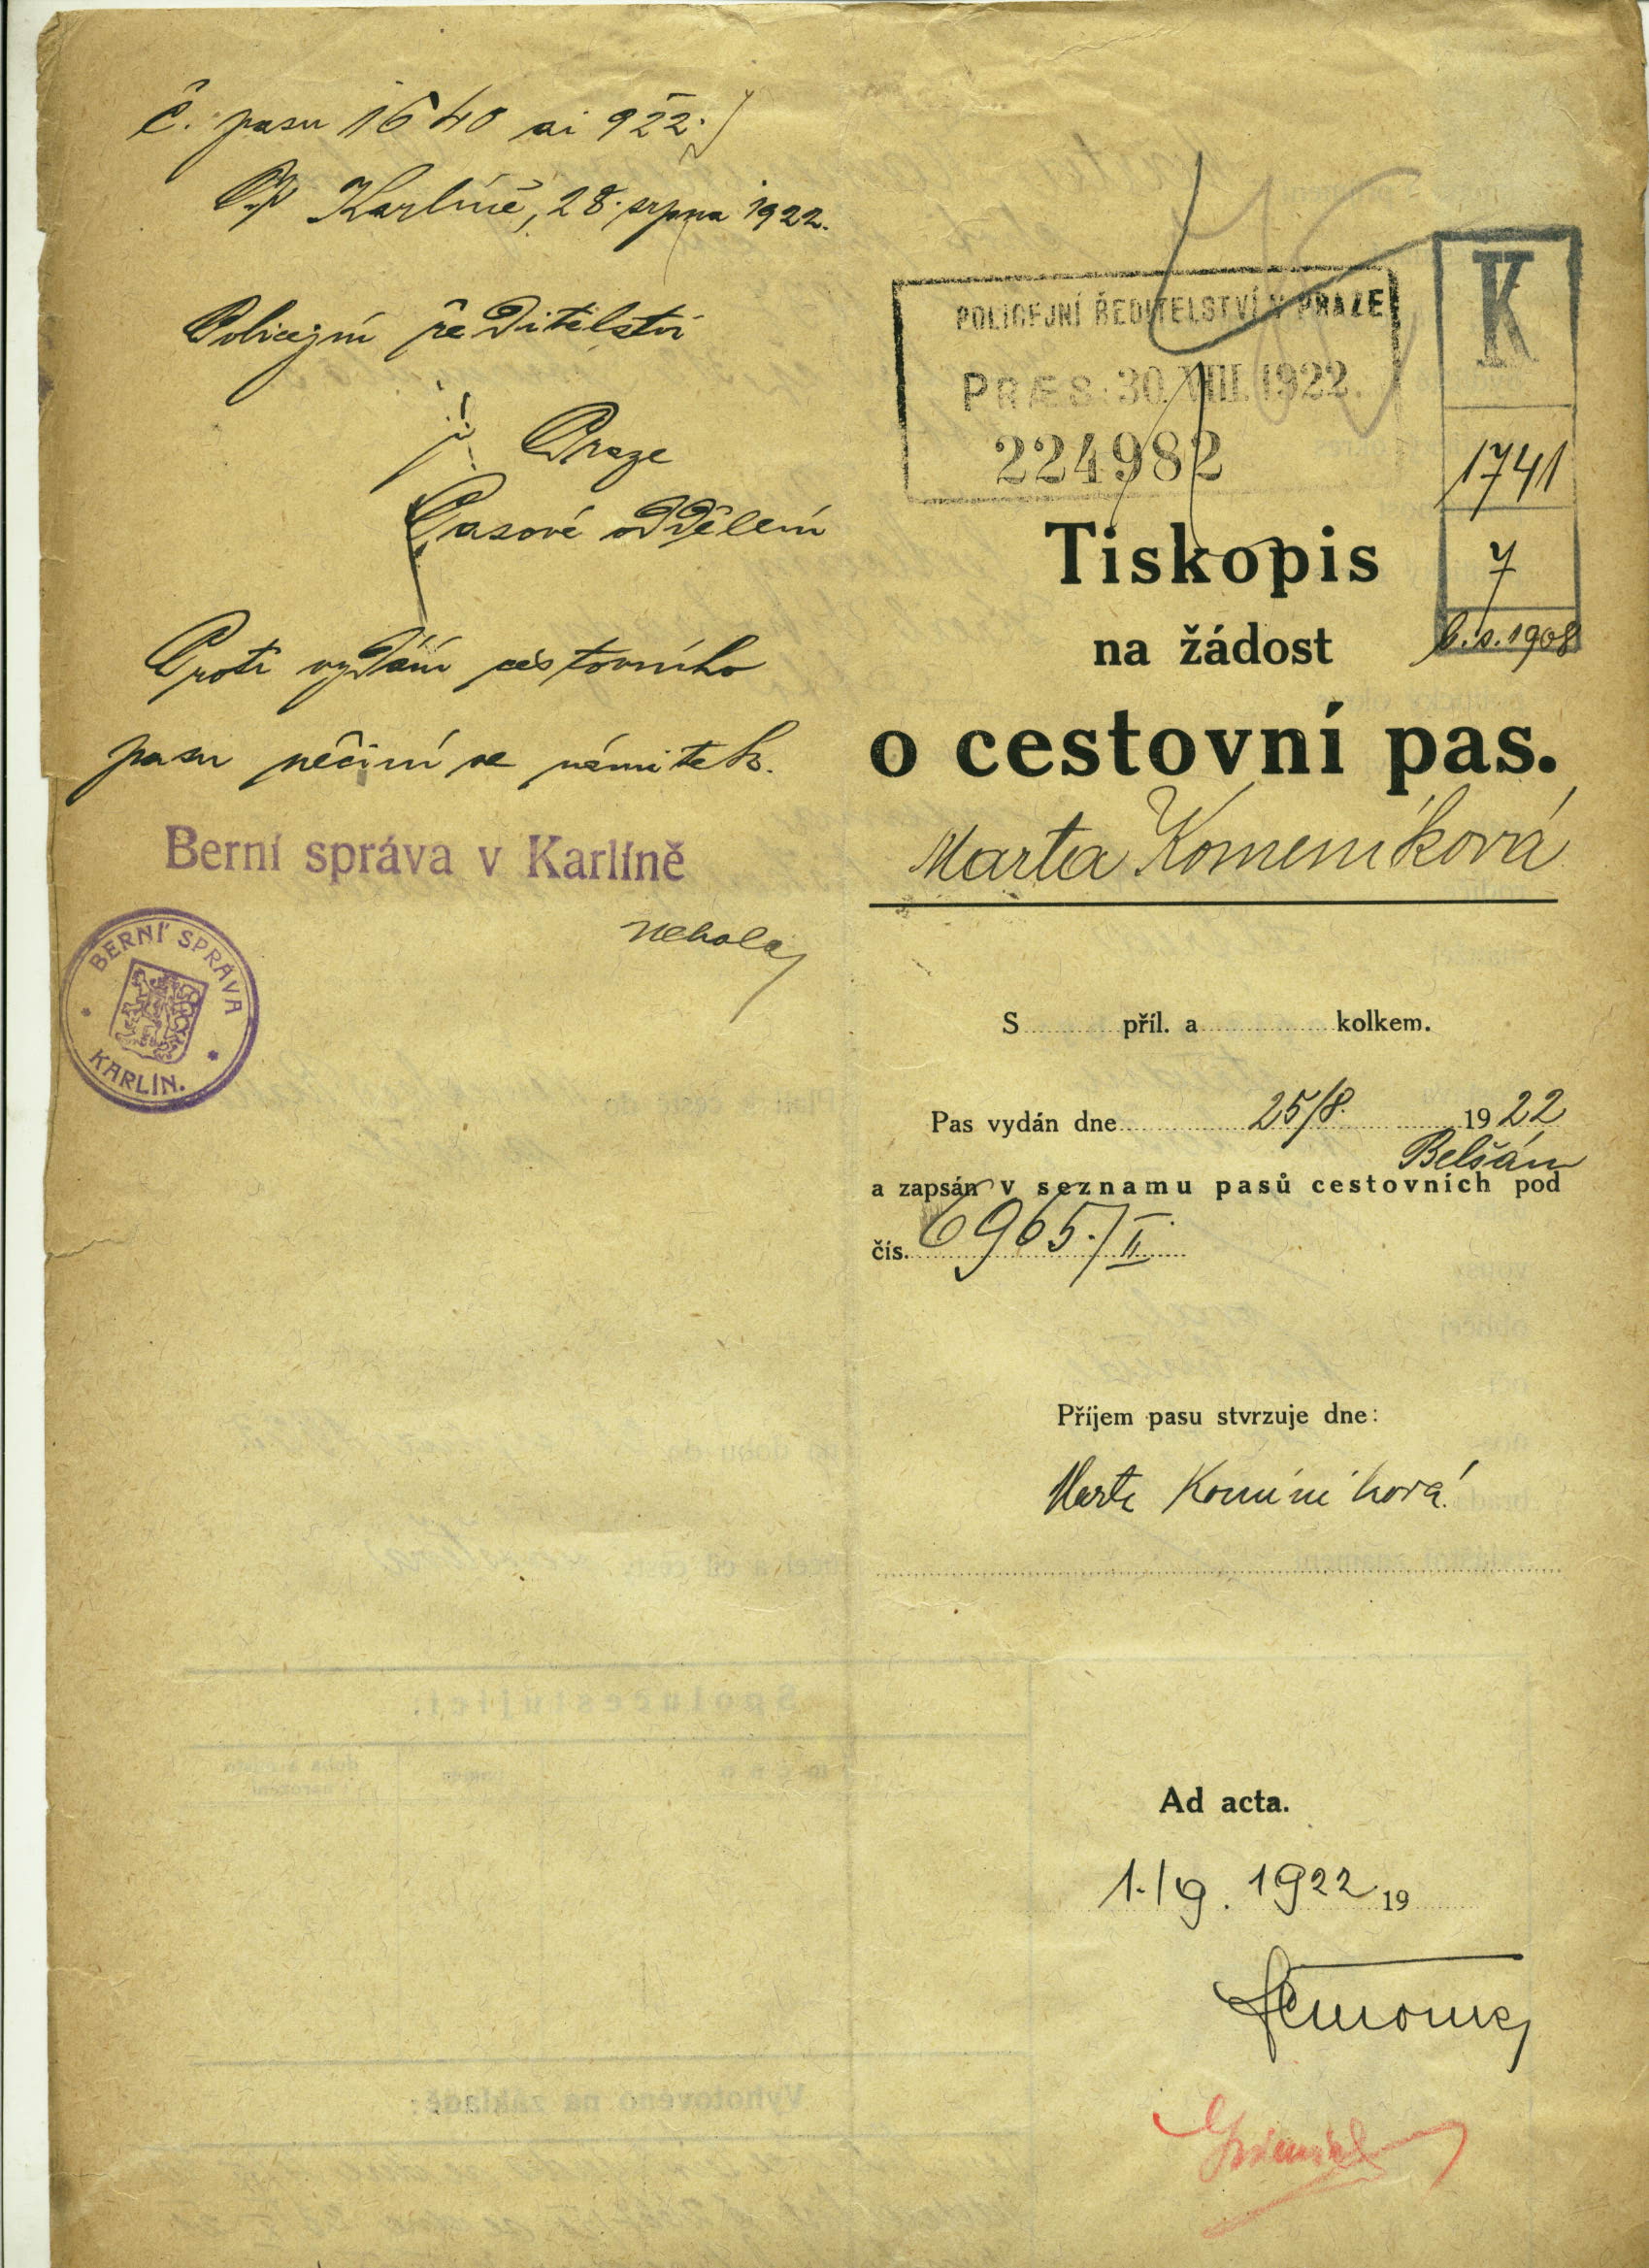 č. pasu 1640 ai 922.
V Karlíně, 28. srpna 1922.
Policejní ředitelství
v Praze
Pasové oddělení
Proti vydání cestovního
pasu nečiní se námitek.
Berní správa v Karlíně
BERNÍ SPRÁVA
KARLÍN.
POLICEJNÍ ŘEDITELSTVÍ V PRAZE
PRÆS. 30. VIII. 1922.
224982
K
1741
7
b.s. 1908
Tiskopis
na žádost
o cestovní pas.
Marta Komeniková
S příl. a kolkem.
Pas vydán dne 25/8. 1922
Belšán
a zapsán v seznamu pasů cestovních pod
čís. 6965./II.
Příjem pasu stvrzuje dne:
Marta Komeniková
Ad acta.
1./9. 1922 19